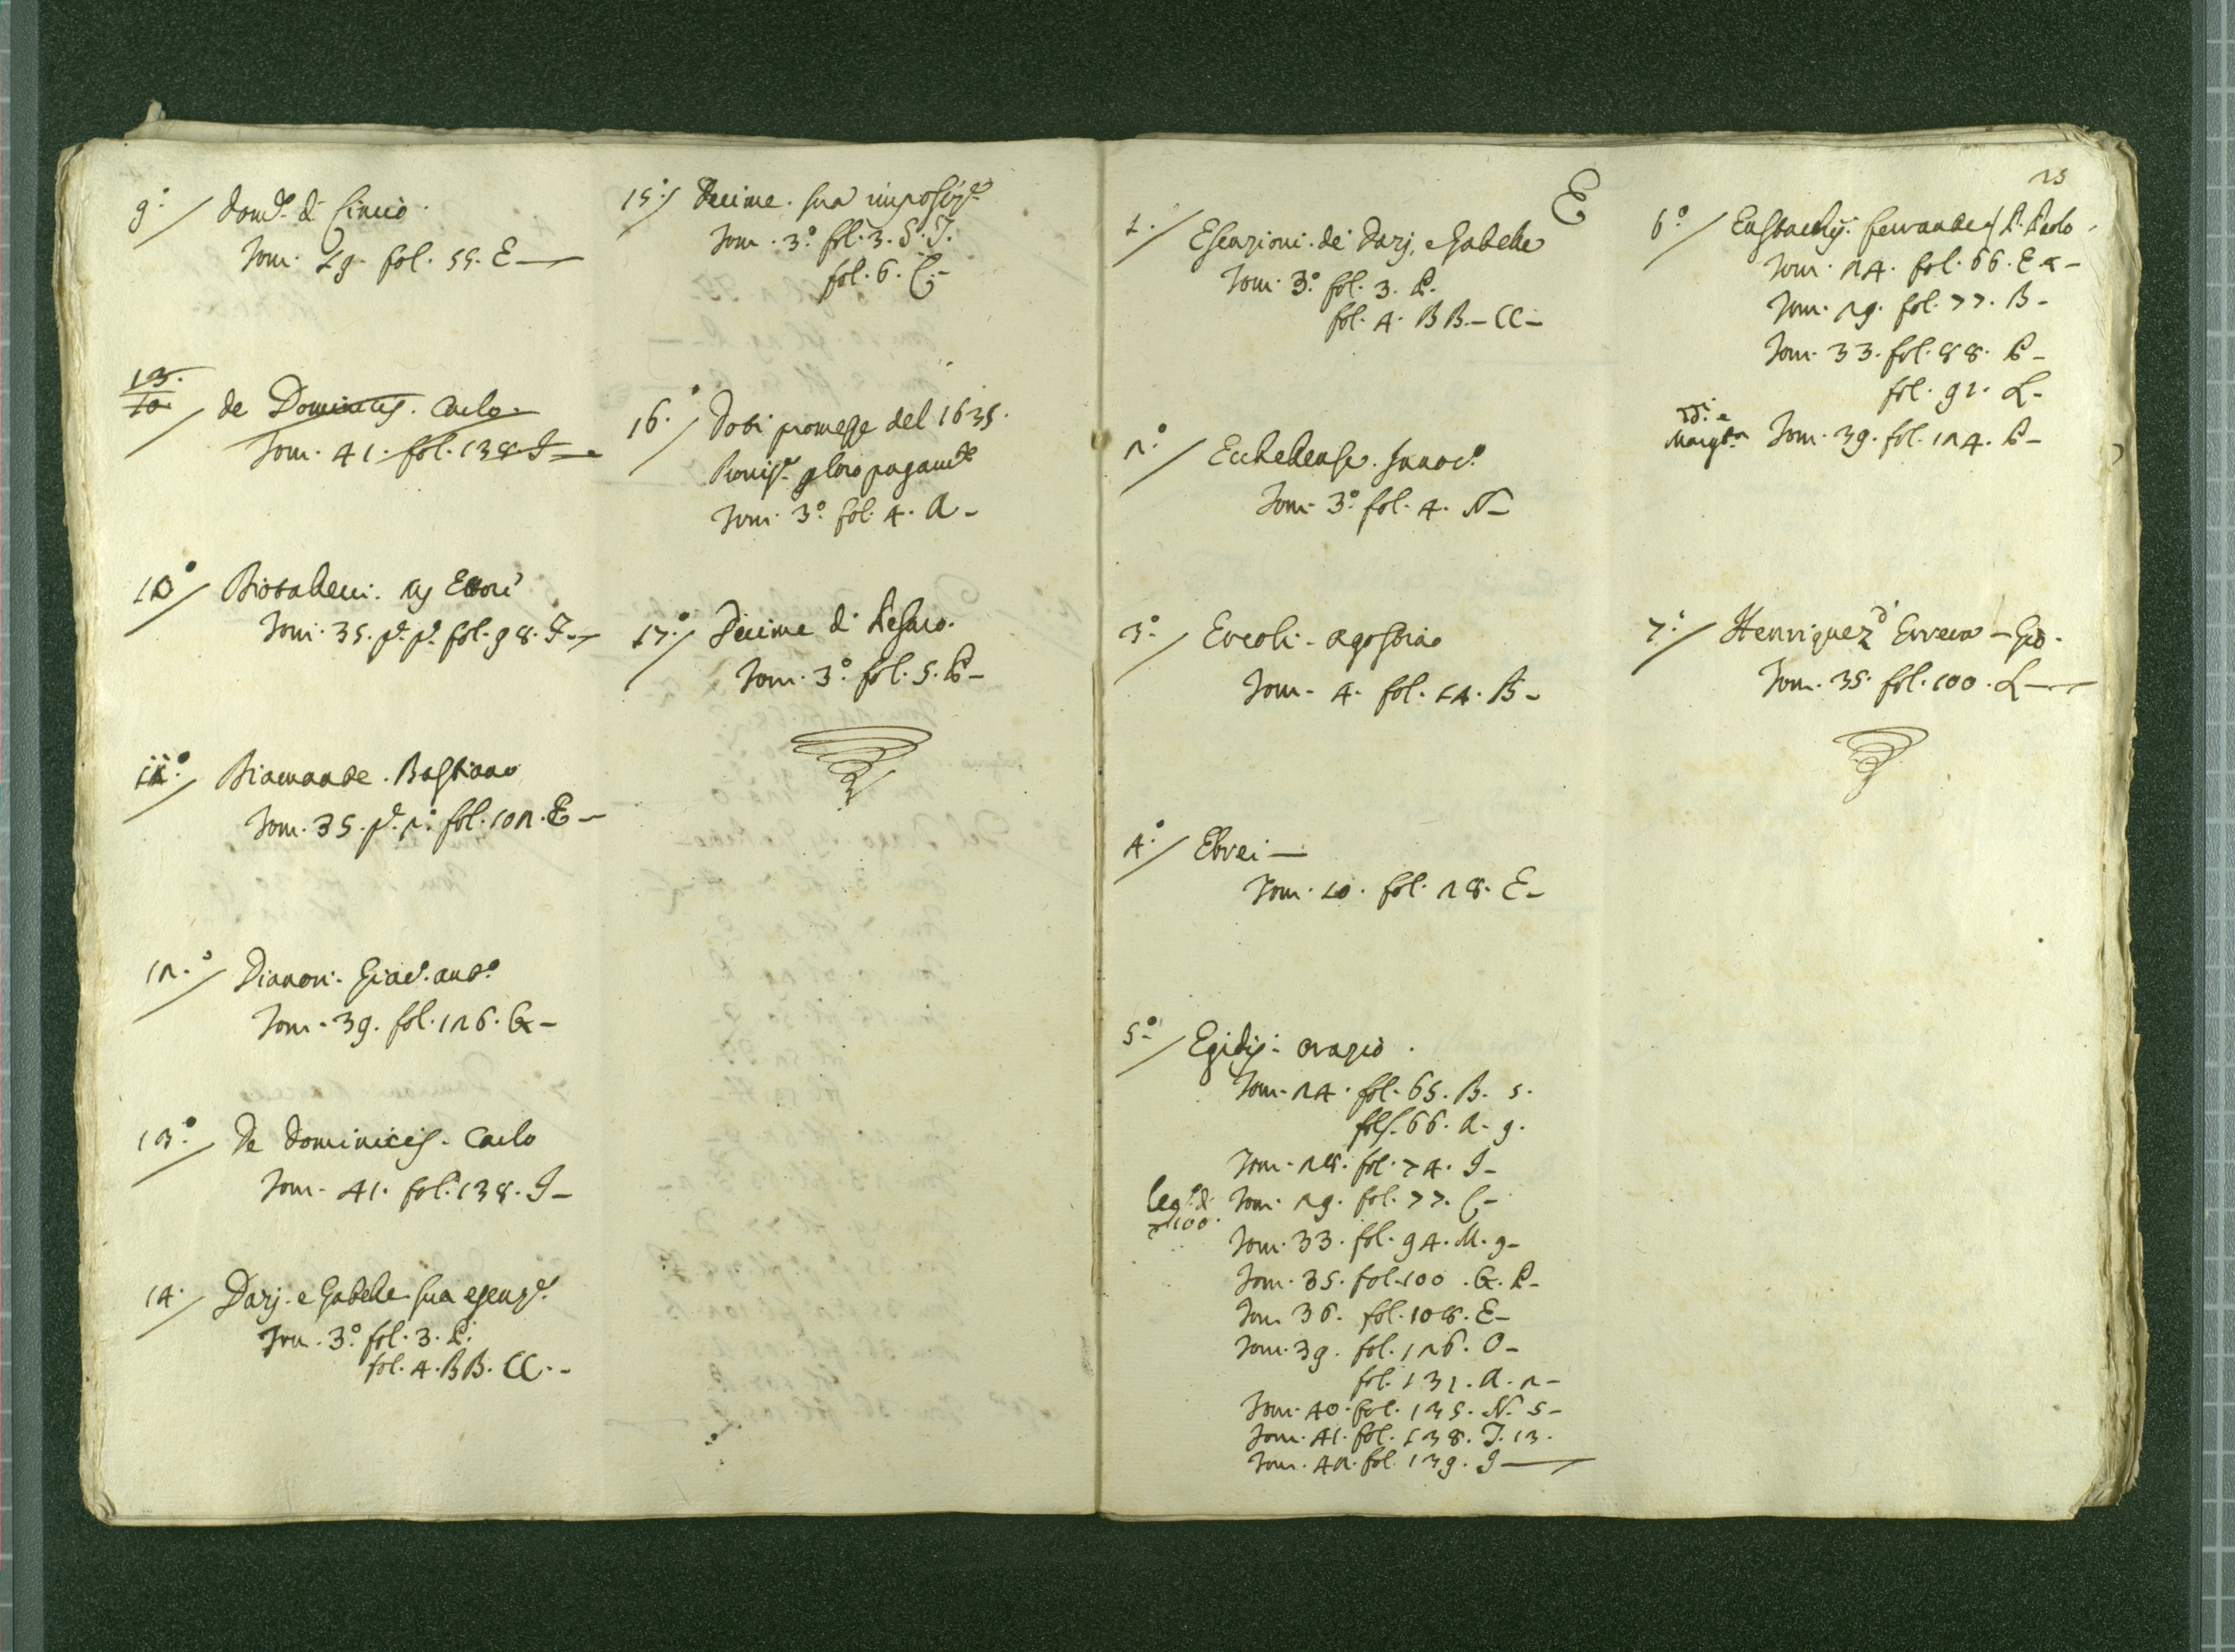 9.º/ Dom.co di Cinciò.
Tom. 19. fol. 55. E—
13.
10 / de Dominicis. Carlo.
Tom. 41. fol. 138 I—
10º/ Diotalleni.
Tom. 35. p.e p.e fol. 98. I—
11.º/ Diamante. Bastiano
Tom. 35. p.e 2.º fol. 102. E—
12.º/ Dianori. Giac. Ant.º
Tom. 39. fol. 126. G—
13.º/ De Dominicis. Carlo
Tom. 41. fol. 138. I—
14./ Dazj. e Gabelle sua esenz.e
Tom. 3.º fol. 3. P.
fol. 4. BB. CC.-
15.º/ Decime. sua imposiz.e
Tom. 3.º fol. 3. S. T.
fol. 6. C.-
16.º/ Doti promesse del 1635.
Provis.e p loro pagam.to
Tom. 3.º fol. 4. A-
17.º/ Decime di Pesaro.
Tom. 3.º fol. 5. P-
E
23
1./ Esenzioni. de' Dazj, e Gabelle
Tom. 3.º fol. 3. P.
fol. 4. BB.- CC-
2.º/ Ecchellense.
Tom. 3.º fol. 4. N-
3.º/ Ercoli. Agostino
Tom. 4. fol. 14. B-
4.º/ Ebrei—
Tom. 10. fol. 28. E-
5.º/ Egidij. Orazio.
Tom. 24. fol. 65. B. 5.
fol. 66. A. 9.
Tom. 28. fol. 74. I-
leg. di 100. Tom. 29. fol. 77. C-
Tom. 33. fol. 94. M. 9-
Tom. 35. fol. 100. G. P-
Tom. 36. fol. 108. E-
Tom. 39. fol. 126. O-
fol. 131. A. 2-
Tom. 40. fol. 135. N. 5-
Tom. 41. fol. 138. I. 13.
Tom. 42. fol. 139. I—
6º/ Eustachij. Fernandez P. Paolo
Tom. 24. fol. 66. E
Tom. 29. fol. 77. B-
Tom. 33. fol. 88. P-
fol. 91. L-
Tom. 39. fol. 124. P-
7.º/ Henriquez d' Errera - Gio.
Tom. 35. fol. 100. L—